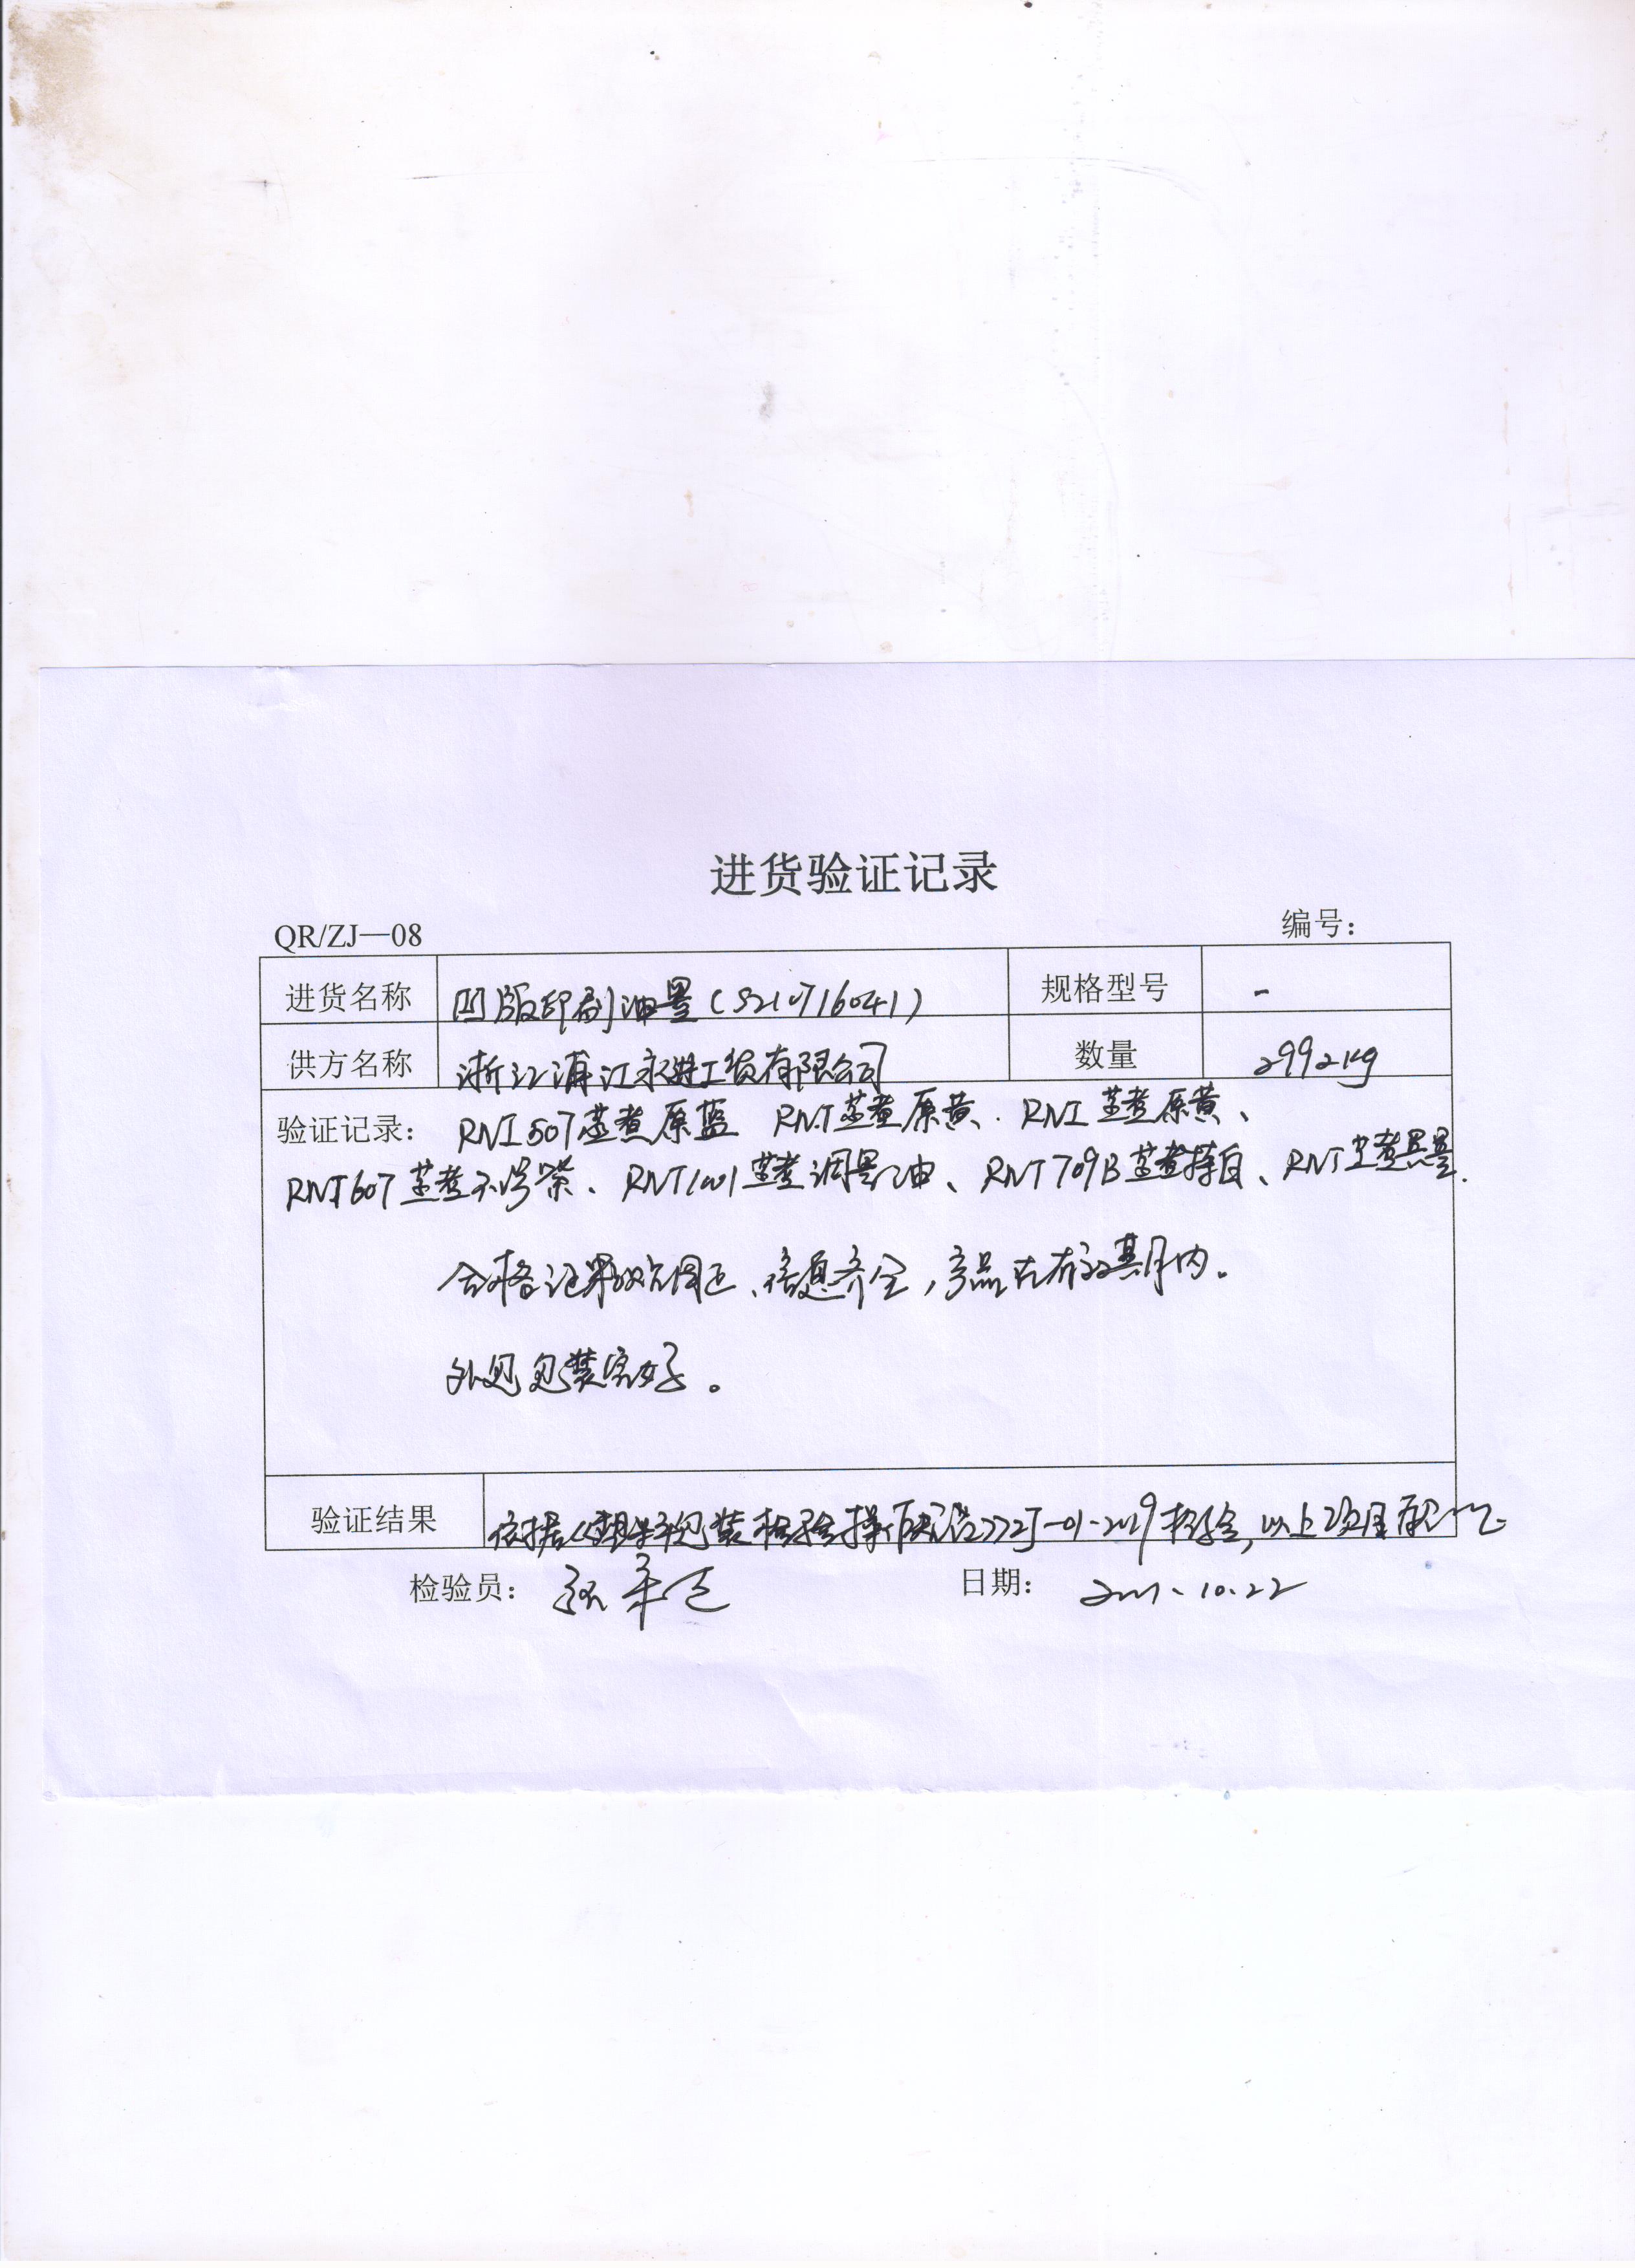 进货验证记录
QR/ZJ—08 编号：
进货名称 凹版印刷油墨(S210716041) 规格型号 -
供方名称 浙江浦江永进工贸有限公司 数量 2992kg
验证记录： RNI507蒸煮原蓝 RNT蒸煮原黄、RNI蒸煮原黄、
RNI607蒸煮不浮紫、RNT1001蒸煮调墨油、RNT709B蒸煮 白、RNT蒸煮 墨.
合格证 、信息齐全，产品在有效期内。
外包包装完好。
验证结果 依据《塑料包装检验操作规范》ZJ-01-2019检验，以上项目
检验员： 日期： 2021.10.22